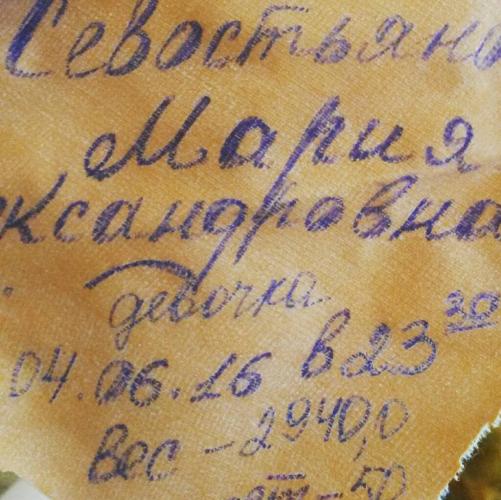 Севостьяно
Мария
ксандровна
девочка
04.06.16 в 23 30
Вес - 2940,0
ст - 50